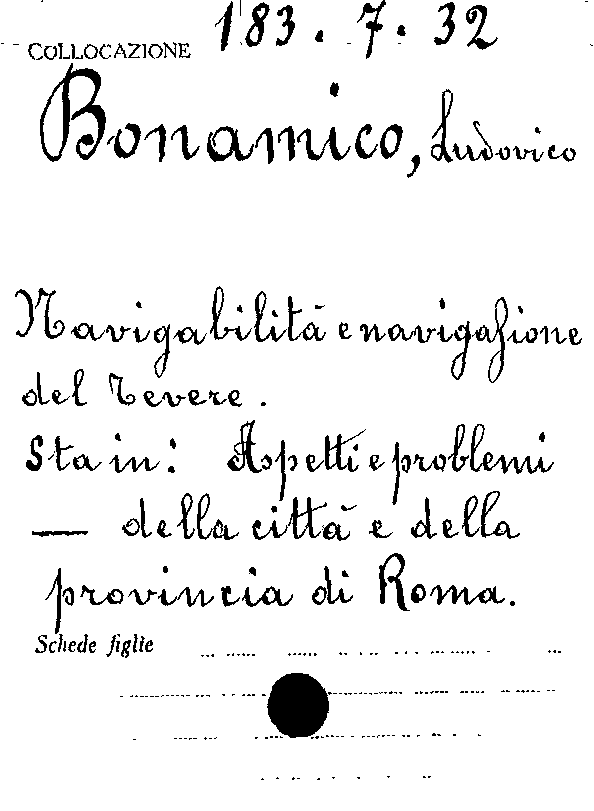 COLLOCAZIONE 183.7.32
Bonamico, Ludovico
Navigabilità e navigazione
del Tevere.
Sta in: Aspetti e problemi
— della città e della
provincia di Roma.
Schede figlie